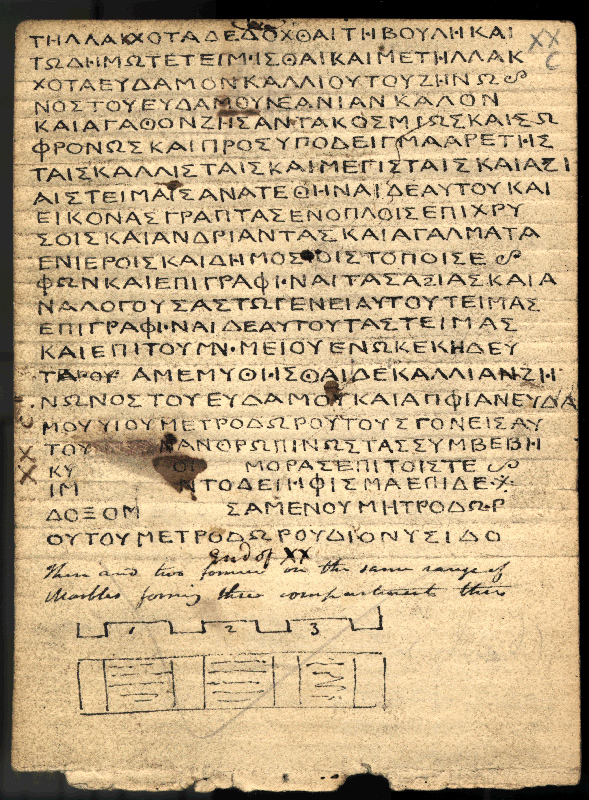 ΤΗΛΛΑΧΟΤΑΔΕΔΟΧΘΑΙΤΗΒΟΥΛΗΚΑΙ
XX
C
ΤΩΔΗΜΩΤΕΤΕΙΜ·ΙΣΘΑΙΚΑΙΜΕΤΗΛΛΑΚ
ΧΟΤΑΕΥΔΑΜΟΝΚΑΛΛΙΟΥΤΟΥΖΗΝΩ
ΝΟΣΤΟΥΕΥΔΑΜΟΥΝΕΑΝΙΑΝΚΑΛΟΝ
ΚΑΙΑΓΑΘΟΝΖΗΣΑΝΤΑΚΟΣΜΙΩΣΚΑΙΣΩ
ΦΡΟΝΩΣΚΑΙΠΡΟΣΥΠΟΔΕΙΓΜΑΑΡΕΤΗΣ
ΤΑΙΣΚΑΛΛΙΣΤΑΙΣΚΑΙΜΕΓΙΣΤΑΙΣΚΑΙΑΞΙ
ΑΙΣΤΕΙΜΑΙΣΑΝΑΤΕΘΗΝΑΙΔΕΑΥΤΟΥΚΑΙ
ΕΙΚΟΝΑΣΓΡΑΠΤΑΣΕΝΟΠΛΟΙΣΕΠΙΧΡΥ
ΣΟΙΣΚΑΙΑΝΔΡΙΑΝΤΑΣΚΑΙΑΓΑΛΜΑΤΑ
ΕΝΙΕΡΟΙΣΚΑΙΔΗΜΟΣΟΙΣΤΟΠΟΙΣΕ
ΦΩΝΚΑΙΕΠΙΓΡΑΦΙ·ΝΑΙΤΑΣΑΞΙΑΣΚΑΙΑ
ΝΑΛΟΓΟΥΣΑΣΤΩΓΕΝΕΙΑΥΤΟΥΤΕΙΜΑΣ
ΕΠΙΓΡΑΦΙ·ΝΑΙΔΕΑΥΤΟΥΤΑΣΤΕΙΜΑΣ
ΚΑΙΕΠΙΤΟΥΜΝ·ΜΕΙΟΥΕΝΩΚΕΚΗΔΕΥ
ΑΜΕΜΥΘΙ·ΙΣΘΑΙΔΕΚΑΛΛΙΑΝΖΗ
ΝΩΝΟΣΤΟΥΕΥΔΑΜΟΥΚΑΙΑΠΦΙΑΝΕΥΔΑ
ΜΟΥΥΙΟΥΜΕΤΡΟΔΩΡΟΥΤΟΥΣΓΟΝΕΙΣΑΥ
ΤΟΥ ΝΑΝΘΡΩΠΙΝΩΣΤΑΣΣΥΜΒΕΒΗ
ΚΥ ΟΙ ΜΟΡΑΣΕΠΙΤΟΙΣΤΕ
ΙΜ ΝΤΟΔΕΙ·ΗΦΙΣΜΑΕΠΙΔΕ·Χ·
ΔΟΞΟΜ ΣΑΜΕΝΟΥΜΗΤΡΟΔΩ·Ρ
ΟΥΤΟΥΜΕΤΡΟΔΩΡΟΥΔΙΟΝΥΣΙΔΟ
End of XX
These and two former on the same range of
Marbles forming three compartment thus
1 2 3